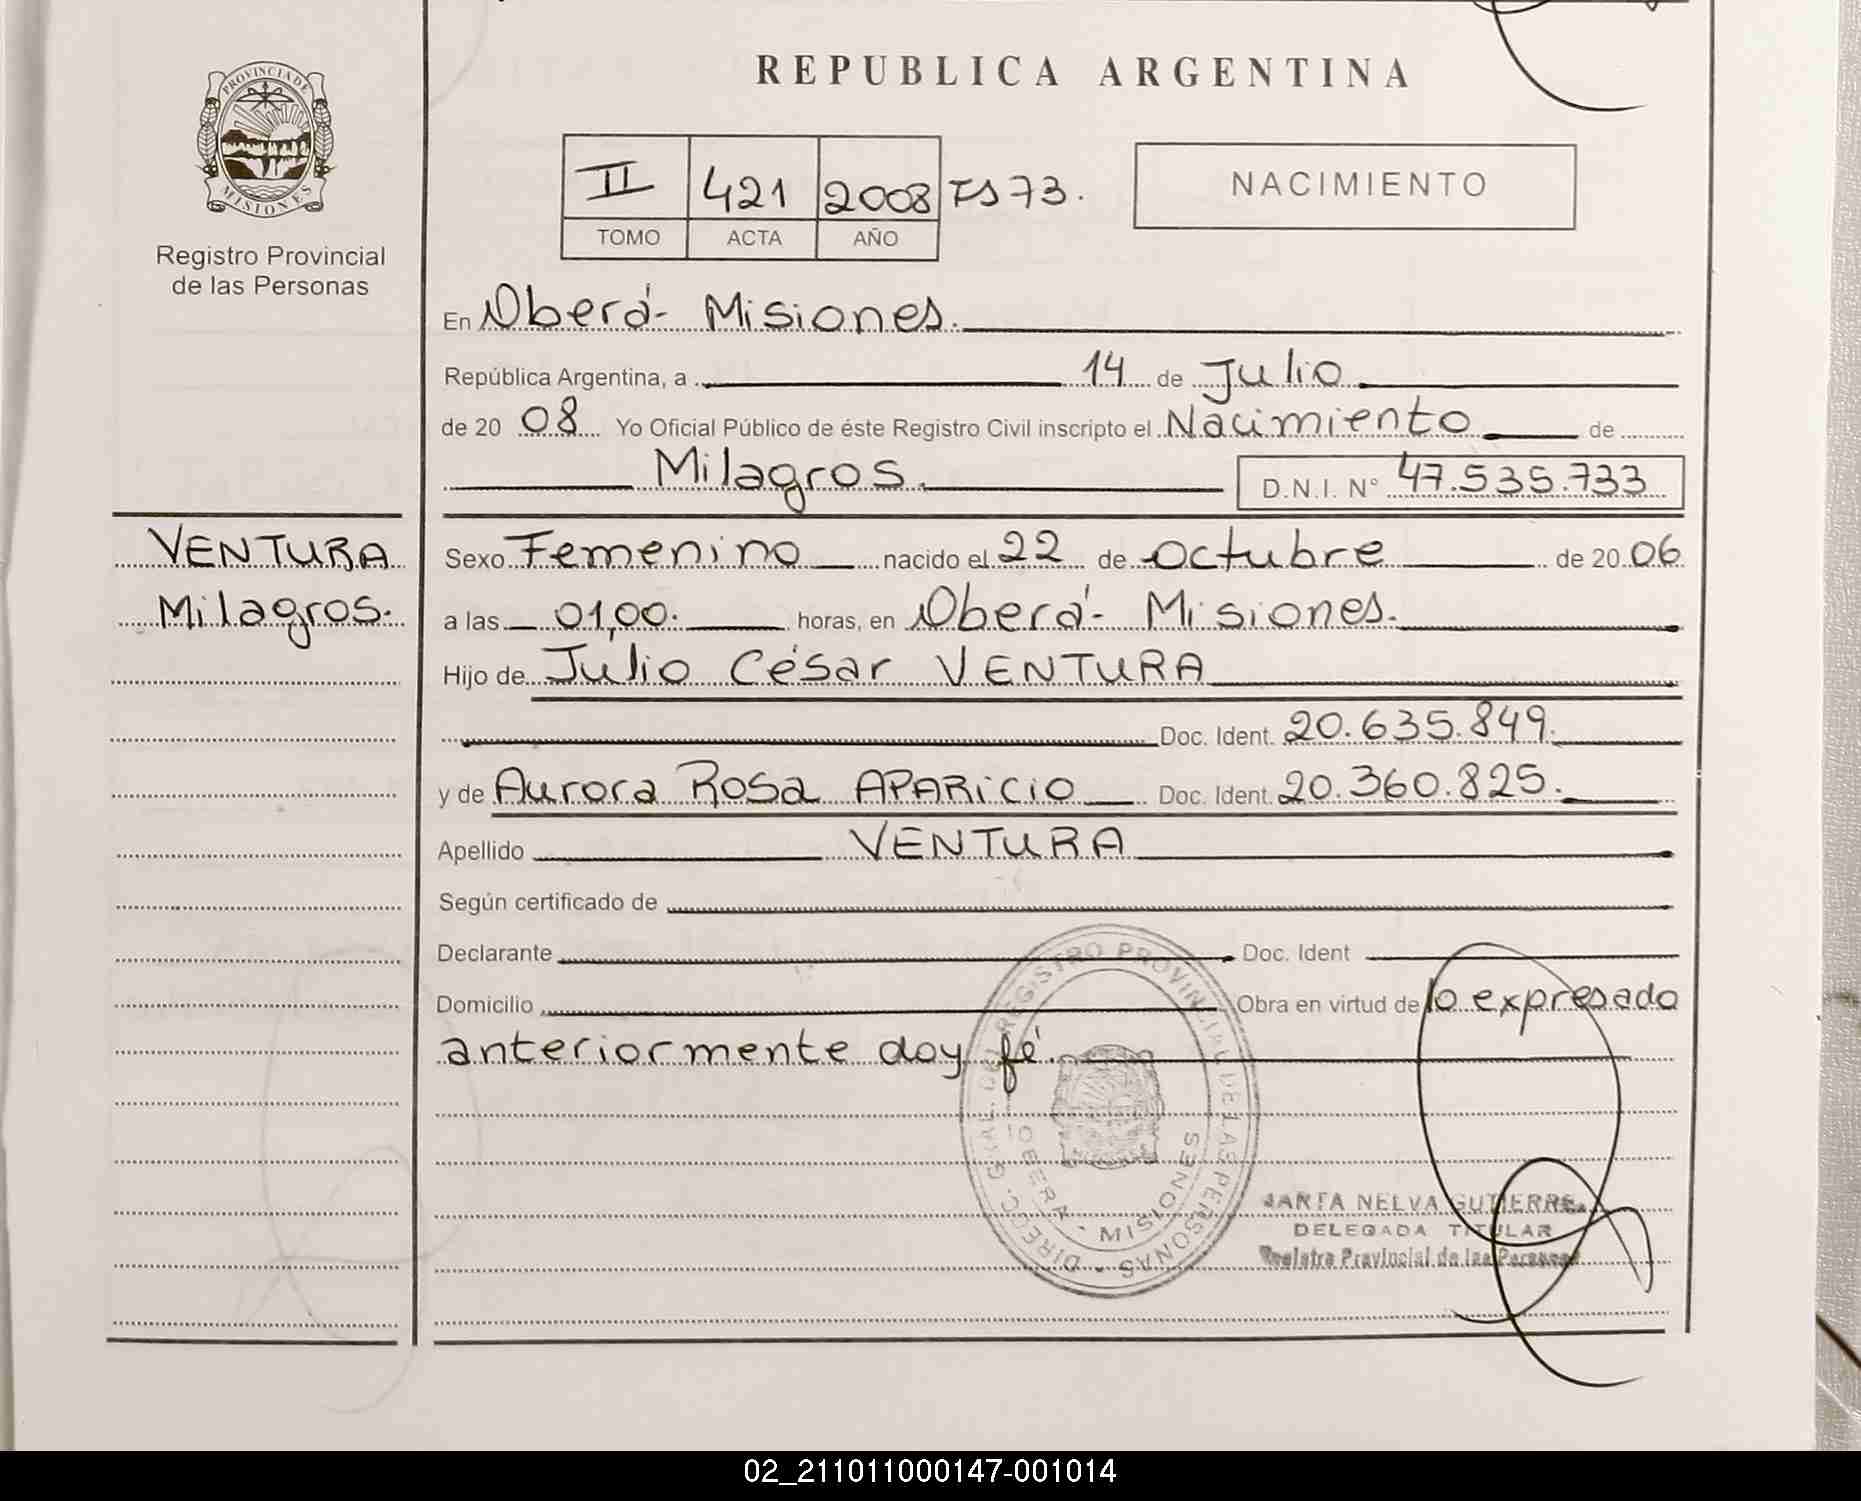 REPUBLICA ARGENTINA
PROVINCIA DE
MISIONES
Registro Provincial
de las Personas
II 421 2008 Fs 73.
TOMO ACTA AÑO
NACIMIENTO
En Oberá- Misiones.
República Argentina, a 14 de Julio
de 20 08 Yo Oficial Público de éste Registro Civil inscripto el Nacimiento de
Milagros. D.N.I. N° 47.535.733
VENTURA
Milagros.
Sexo Femenino nacido el 22 de octubre de 20 06
a las 01,00. horas, en Oberá- Misiones.
Hijo de Julio César VENTURA
Doc. Ident. 20.635.849.
y de Aurora Rosa APARICIO Doc. Ident. 20.360.825.
Apellido VENTURA
Según certificado de
Declarante Doc. Ident
Domicilio Obra en virtud de lo expresado
anteriormente doy fé.
DIRECC. GRAL. DEL REGISTRO PROVINCIAL DE LAS PERSONAS
OBERA - MISIONES
NELVA GUTIERRE
DELEGADA TITULAR
Registro Provincial de las Personas
02_211011000147-001014